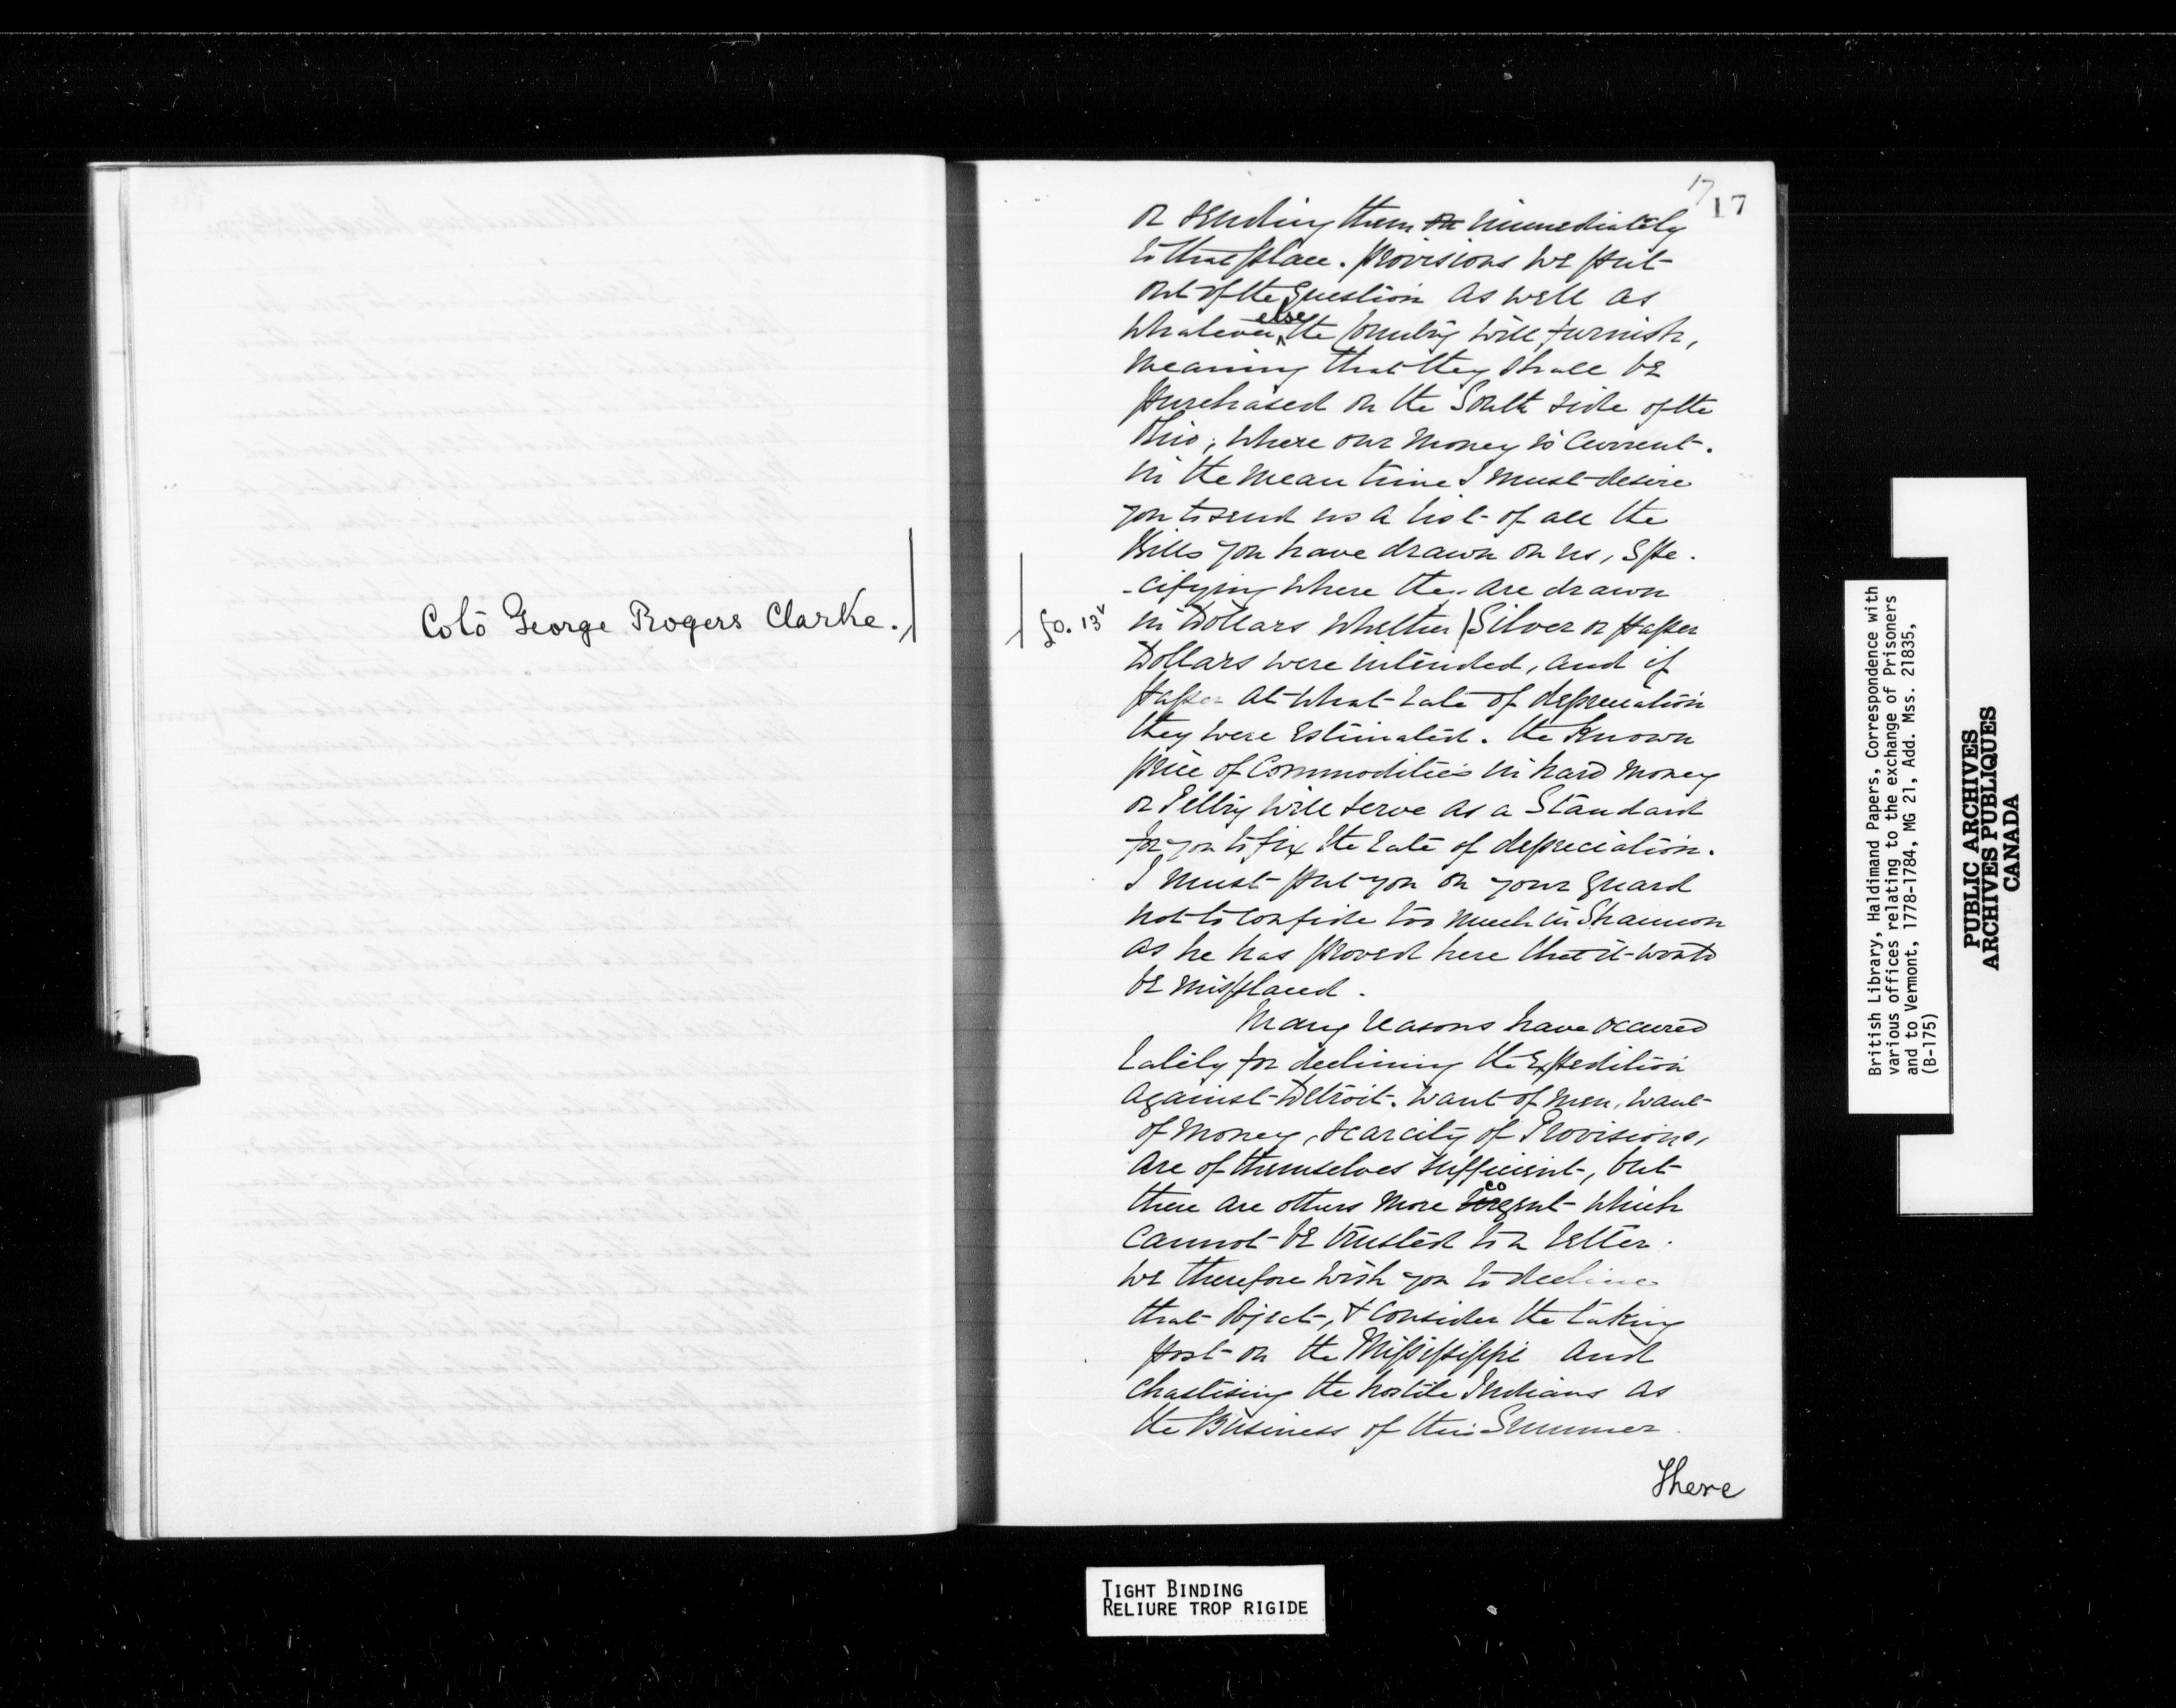 Colo George Rogers Clarke.
17
17
or sending them on immediately
to that place. Provisions we put
out of the question as well as
whatever else the Country will furnish,
meaning that they shall be
purchased on the South side of the
Ohio, where our Money is Current.
in the mean time I must desire
you to send us a list of all the
Bills you have drawn on us, Spe-
-cifying where they are drawn
fo. 13v
in Dollars whether Silver or paper
Dollars were intended, and if
paper at what rate of depreciation
they were Estimated. the Known
price of Commodities in hard Money
or Peltry will serve as a Standard
for you to fix the rate of depreciation.
I must put you on your Guard
not to confide too much in Shannon
as he has proved here that it would
be misplaced.
Many reasons have occured
lately for declining the Expedition
against Detroit. want of men, want
of money, scarcity of Provisions,
are of themselves sufficient, but
there are others more cogent which
cannot be trusted to a letter.
we therefore wish you to decline
that Object, & consider the taking
post on the Mississippi and
chastising the hostile Indians as
the Business of this Summer.
There
TIGHT BINDING
RELIURE TROP RIGIDE
British Library, Haldimand Papers, Correspondence with
various offices relating to the exchange of Prisoners
and to Vermont, 1778-1784, MG 21, Add. Mss. 21835,
(B-175)
PUBLIC ARCHIVES
ARCHIVES PUBLIQUES
CANADA